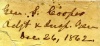 Gen. S. Cooper
Adjt & Insp. Gen
Dec 26, 1862